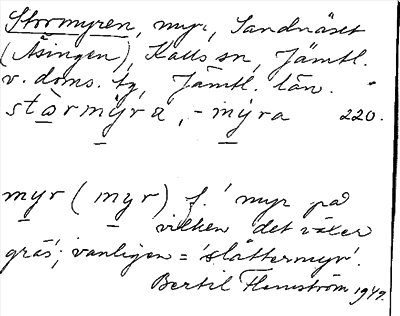 Stormyren, myr, Sandnäset
(Åsingen), Kalls sn, Jämtl.
v. doms. tg, Jämtl. län.
stơrmy̆ra, -my̆ra 220.
myr (myr) f. 'myr på
vilken det växer
gräs'; vanligen = 'slåttermyr'.
Bertil Flemström 1947.